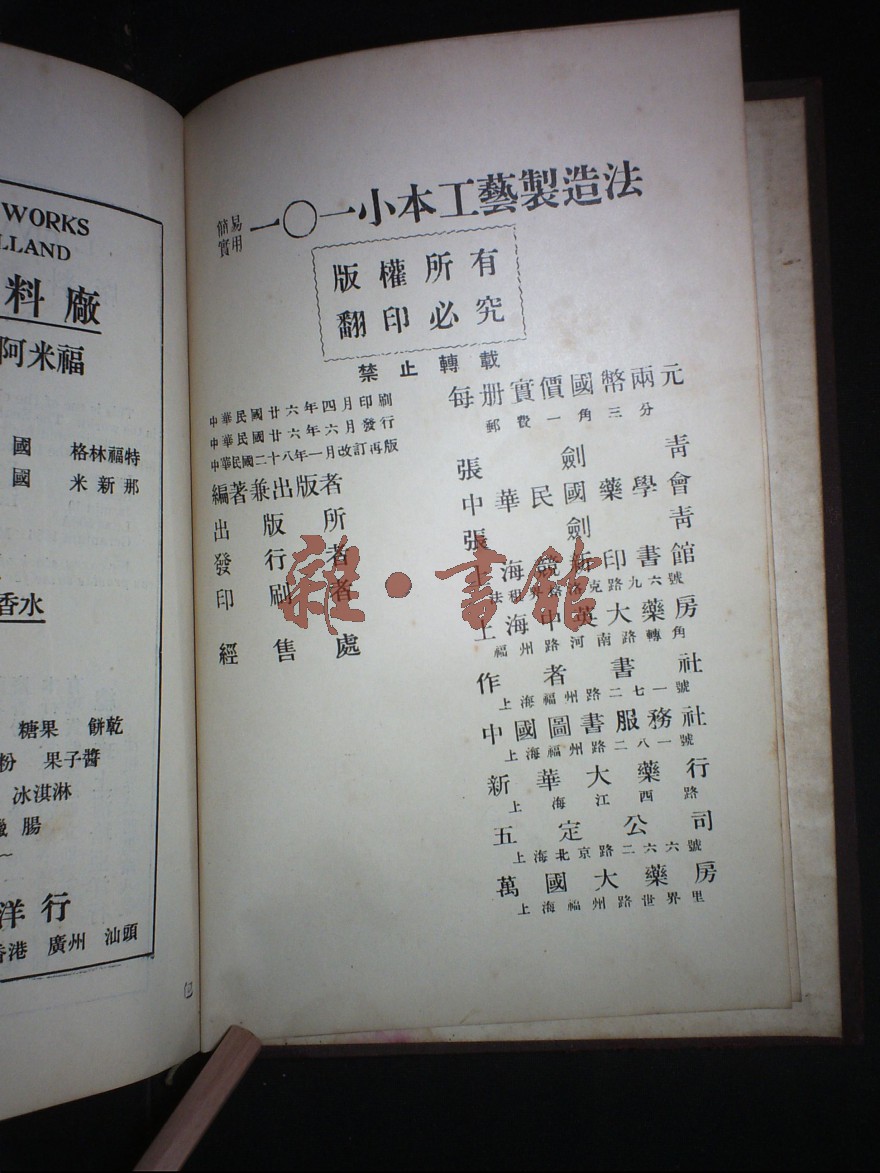 WORKS
LLAND
料廠
阿米福
國 格林福特
國 米新那
香水
糖果 餅乾
粉 果子醬
冰淇淋
腸
洋行
香港 廣州 汕頭
簡易實用 一〇一小本工藝製造法
版權所有
翻印必究
禁止轉載
每册實價國幣兩元
郵費一角三分
中華民國廿六年四月印刷
中華民國廿六年六月發行
中華民國二十八年一月改訂再版
編著兼出版者 張劍青
出版所 中華民國藥學會
發行者 張劍青
印刷者 上海 新印書館
路九六號
經售處 上海中英大藥房
福州路河南路轉角
作者書社
上海福州路二七一號
中國圖書服務社
上海福州路二八一號
新華大藥行
上海江西路
五定公司
上海北京路二六六號
萬國大藥房
上海福州路世界里
雜·書館